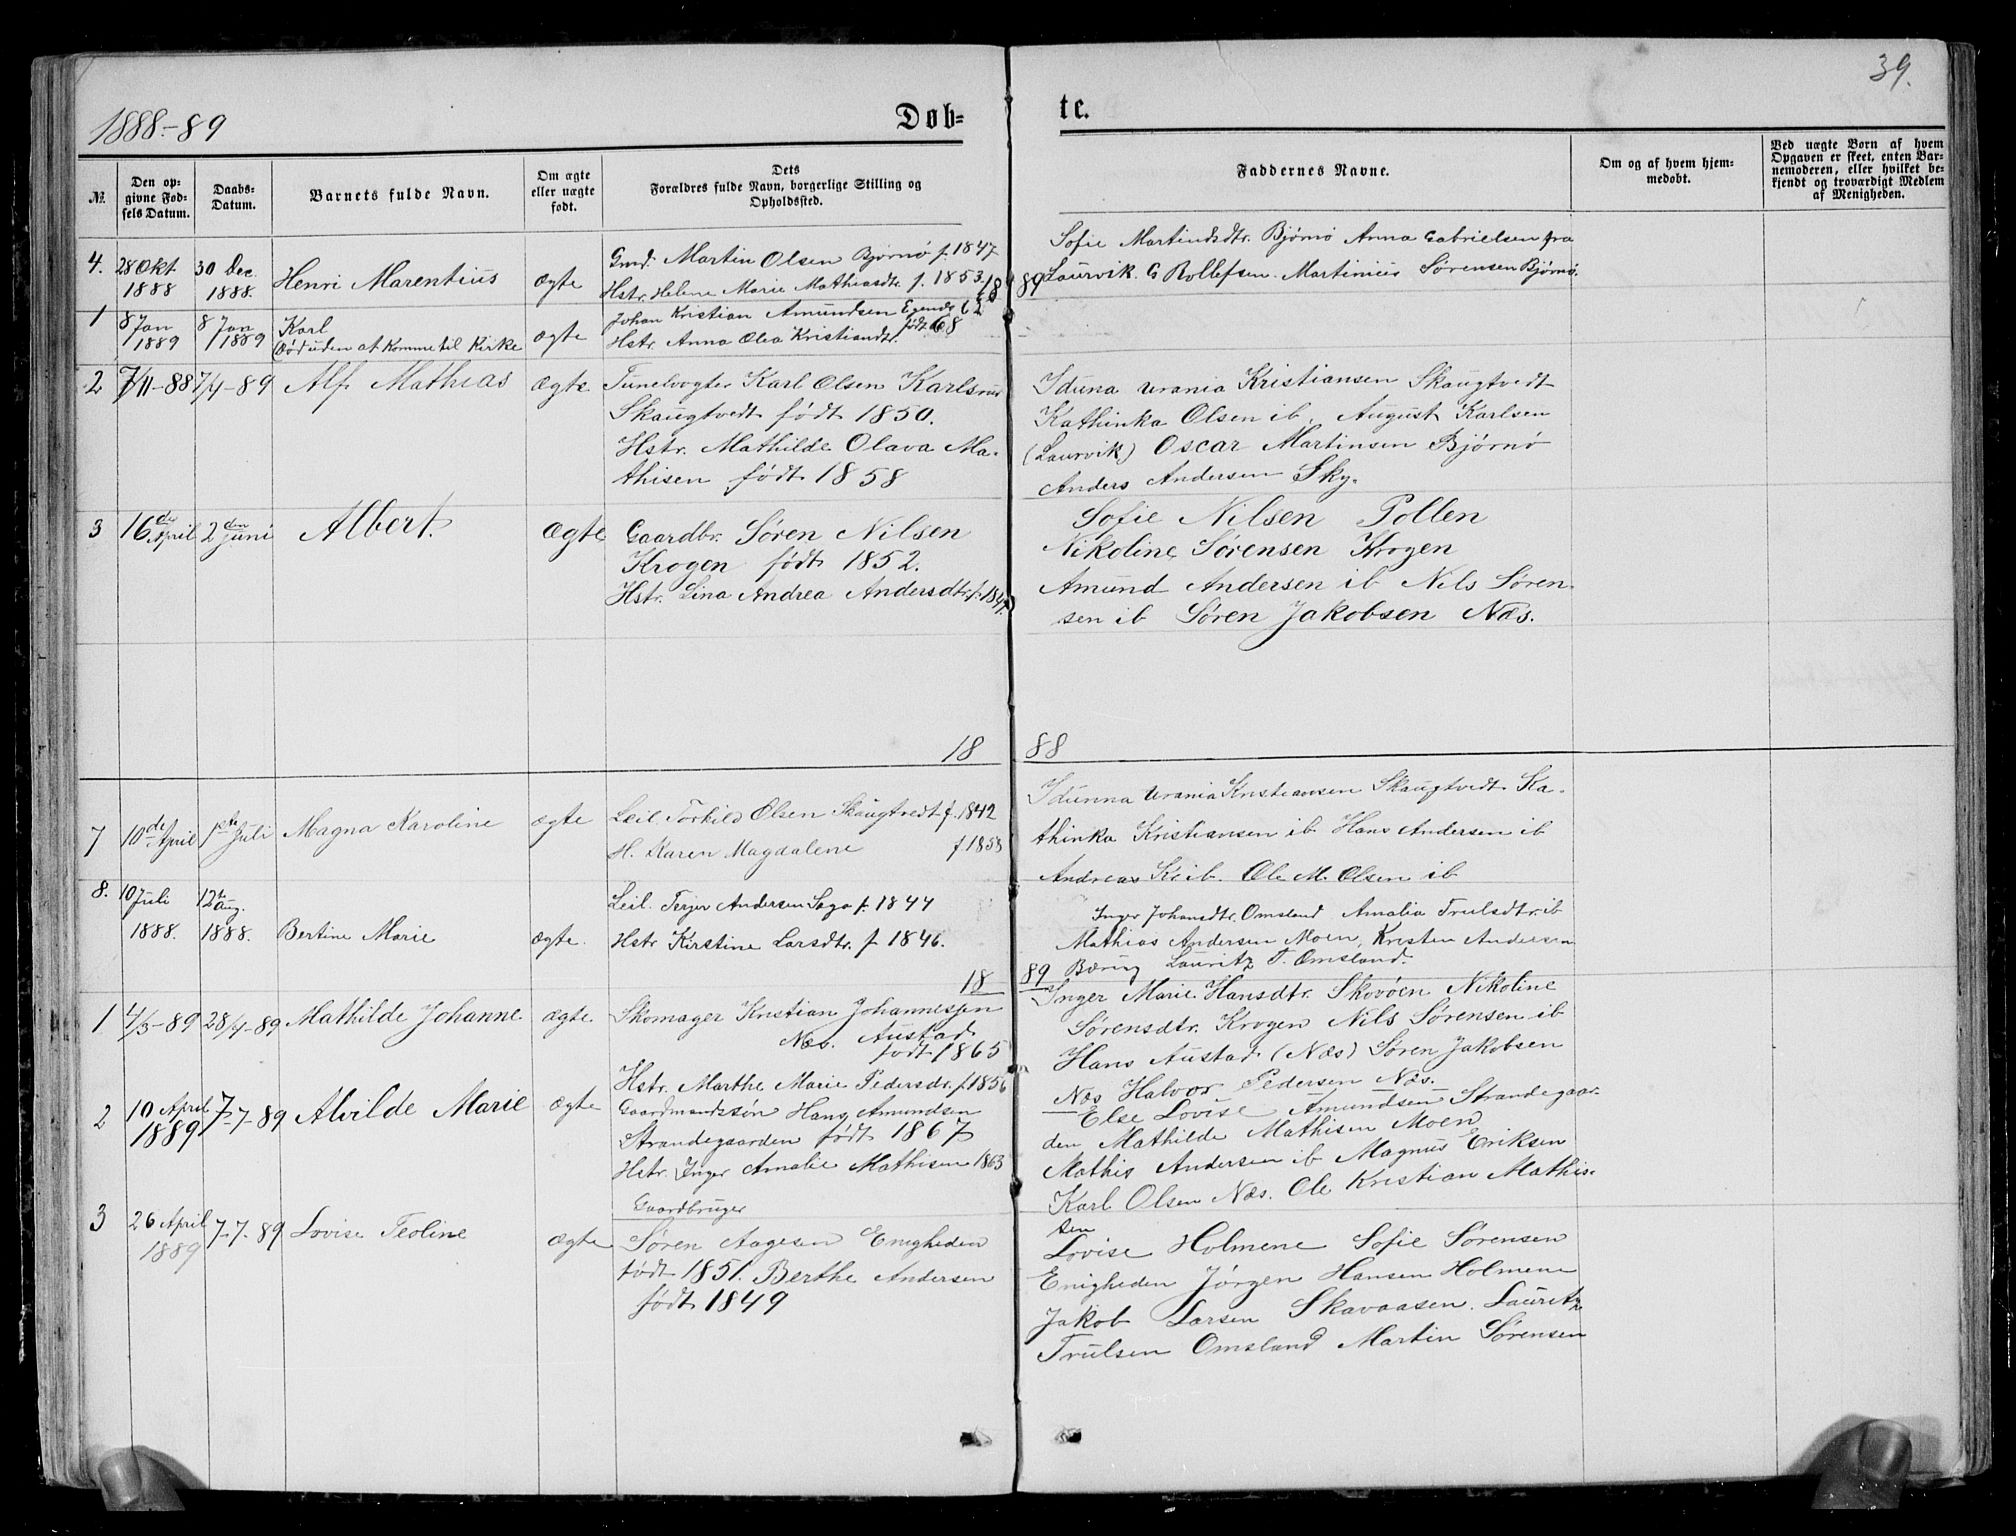 39.
1888-89
Døb-
te.
№.
Den op-
givne Fød-
sels Datum.
Daabs-
Datum.
Barnets fulde Navn.
Om ægte
eller uægte
født.
Dets
Forældres fulde Navn, borgerlige Stilling og
Opholdssted.
Faddernes Navne.
Om og af hvem hjem-
medøbt.
Ved uægte Børn af hvem
Opgaven er skeet, enten Bar-
nemoderen, eller hvilket be-
kjendt og troværdigt Medlem
af Menigheden.
4. 28 Okt 1888 30 Dec. 1888. Henri Marentius ægte
Gmd. Martin Olsen Bjørnø f. 1847
Hstr. Helene Marie Mathiasdtr. f. 1853
Sofie Martinusdtr. Bjørnø Anna Gabrielsen fra
Laurvik. G Rollefsen. Martinius Sørensen Bjørnø.
18 89
1 8 Jan 1889 8 Jan 1889 Karl
(Død uden at komme til Kirke ægte
Johan Kristian Amundsen Eqends 62
Hstr. Anna Olea Kristiandtr. født 68
2 7/11-88 7/4-89 Alf Mathias ægte
Tunelvogter Karl Olsen Karlsrud
Skaugtvedt født 1850.
Hstr. Mathilde Olava Ma-
thisen født 1858
Iduna Urania Kristiansen Skaugtvedt
Kathinka Olsen ib. August Karlsen
(Laurvik) Oscar Martinsen Bjørnø
Anders Andersen Sky.
3 16de April 2den Juni Albert. ægte
Gaardbr. Søren Nilsen
Krogen født 1852.
Hstr. Lina Andrea Andersdtr. f. 1847.
Sofie Nilsen Pollen
Nikoline Sørensen Krogen
Amund Andersen ib Nils Søren-
sen ib Søren Jakobsen Næs.
18 88
7 10de April 1ste Juli Magna Karoline ægte
Leil. Torkild Olsen Skaugtvedt f. 1842
H. Karen Magdalene f. 1853
Idunna Urania Kristiansen Skaugtvedt Ka-
thinka Kristiansen ib. Hans Andersen ib
Andreas K ib. Ole M. Olsen ib
8. 10 Juli 1888. 12te Aug. 1888. Bertine Marie ægte.
Leil. Terjer Andersen Saga f. 1844
Hstr Kirstine Larsdtr. f 1846.
Inger Johansdtr. Omsland Amalia Trulsdtr. ib
Mathias Andersen Moen, Kristen Andersen
Bæring Lauritz T. Omsland.
18 89
1 4/3-89 28/4-89 Mathilde Johanne ægte.
Skomager Kristian Johannessen
Næs. Austad
født 1865
Hstr. Marthe Marie Pedersdr. f. 1856
Inger Marie Hansdtr. Skovøen Nikoline
Sørensdtr. Krogen Nils Sørensen ib
Hans Austad (Næs) Søren Jakobsen
Næs Halvor Pedersen Næs.
2 10 April 1889 7-7-89 Alvilde Marie ægte
Gaardmandssøn Hans Amundsen
Strandegaarden født 1867
Hstr. Inger Amalie Mathisen 1863
Else Lovise Amundsen Strandegaar-
den Mathilde Mathisen Moen
Mathis Andersen ib Magnus Eriksen
Karl Olsen Næs. Ole Kristian Mathis-
sen
3 26 April 1889 7-7-89 Lovise Teoline ægte
Gaardbruger
Søren Aagesen Enigheden
født 1851. Berthe Andersen
født 1849
Lovise Holmene Sofie Sørensen
Enigheden Jørgen Hansen Holmene
Jakob Larsen Skavaasen. Lauritz
Trulsen Omsland Martin Sørensen